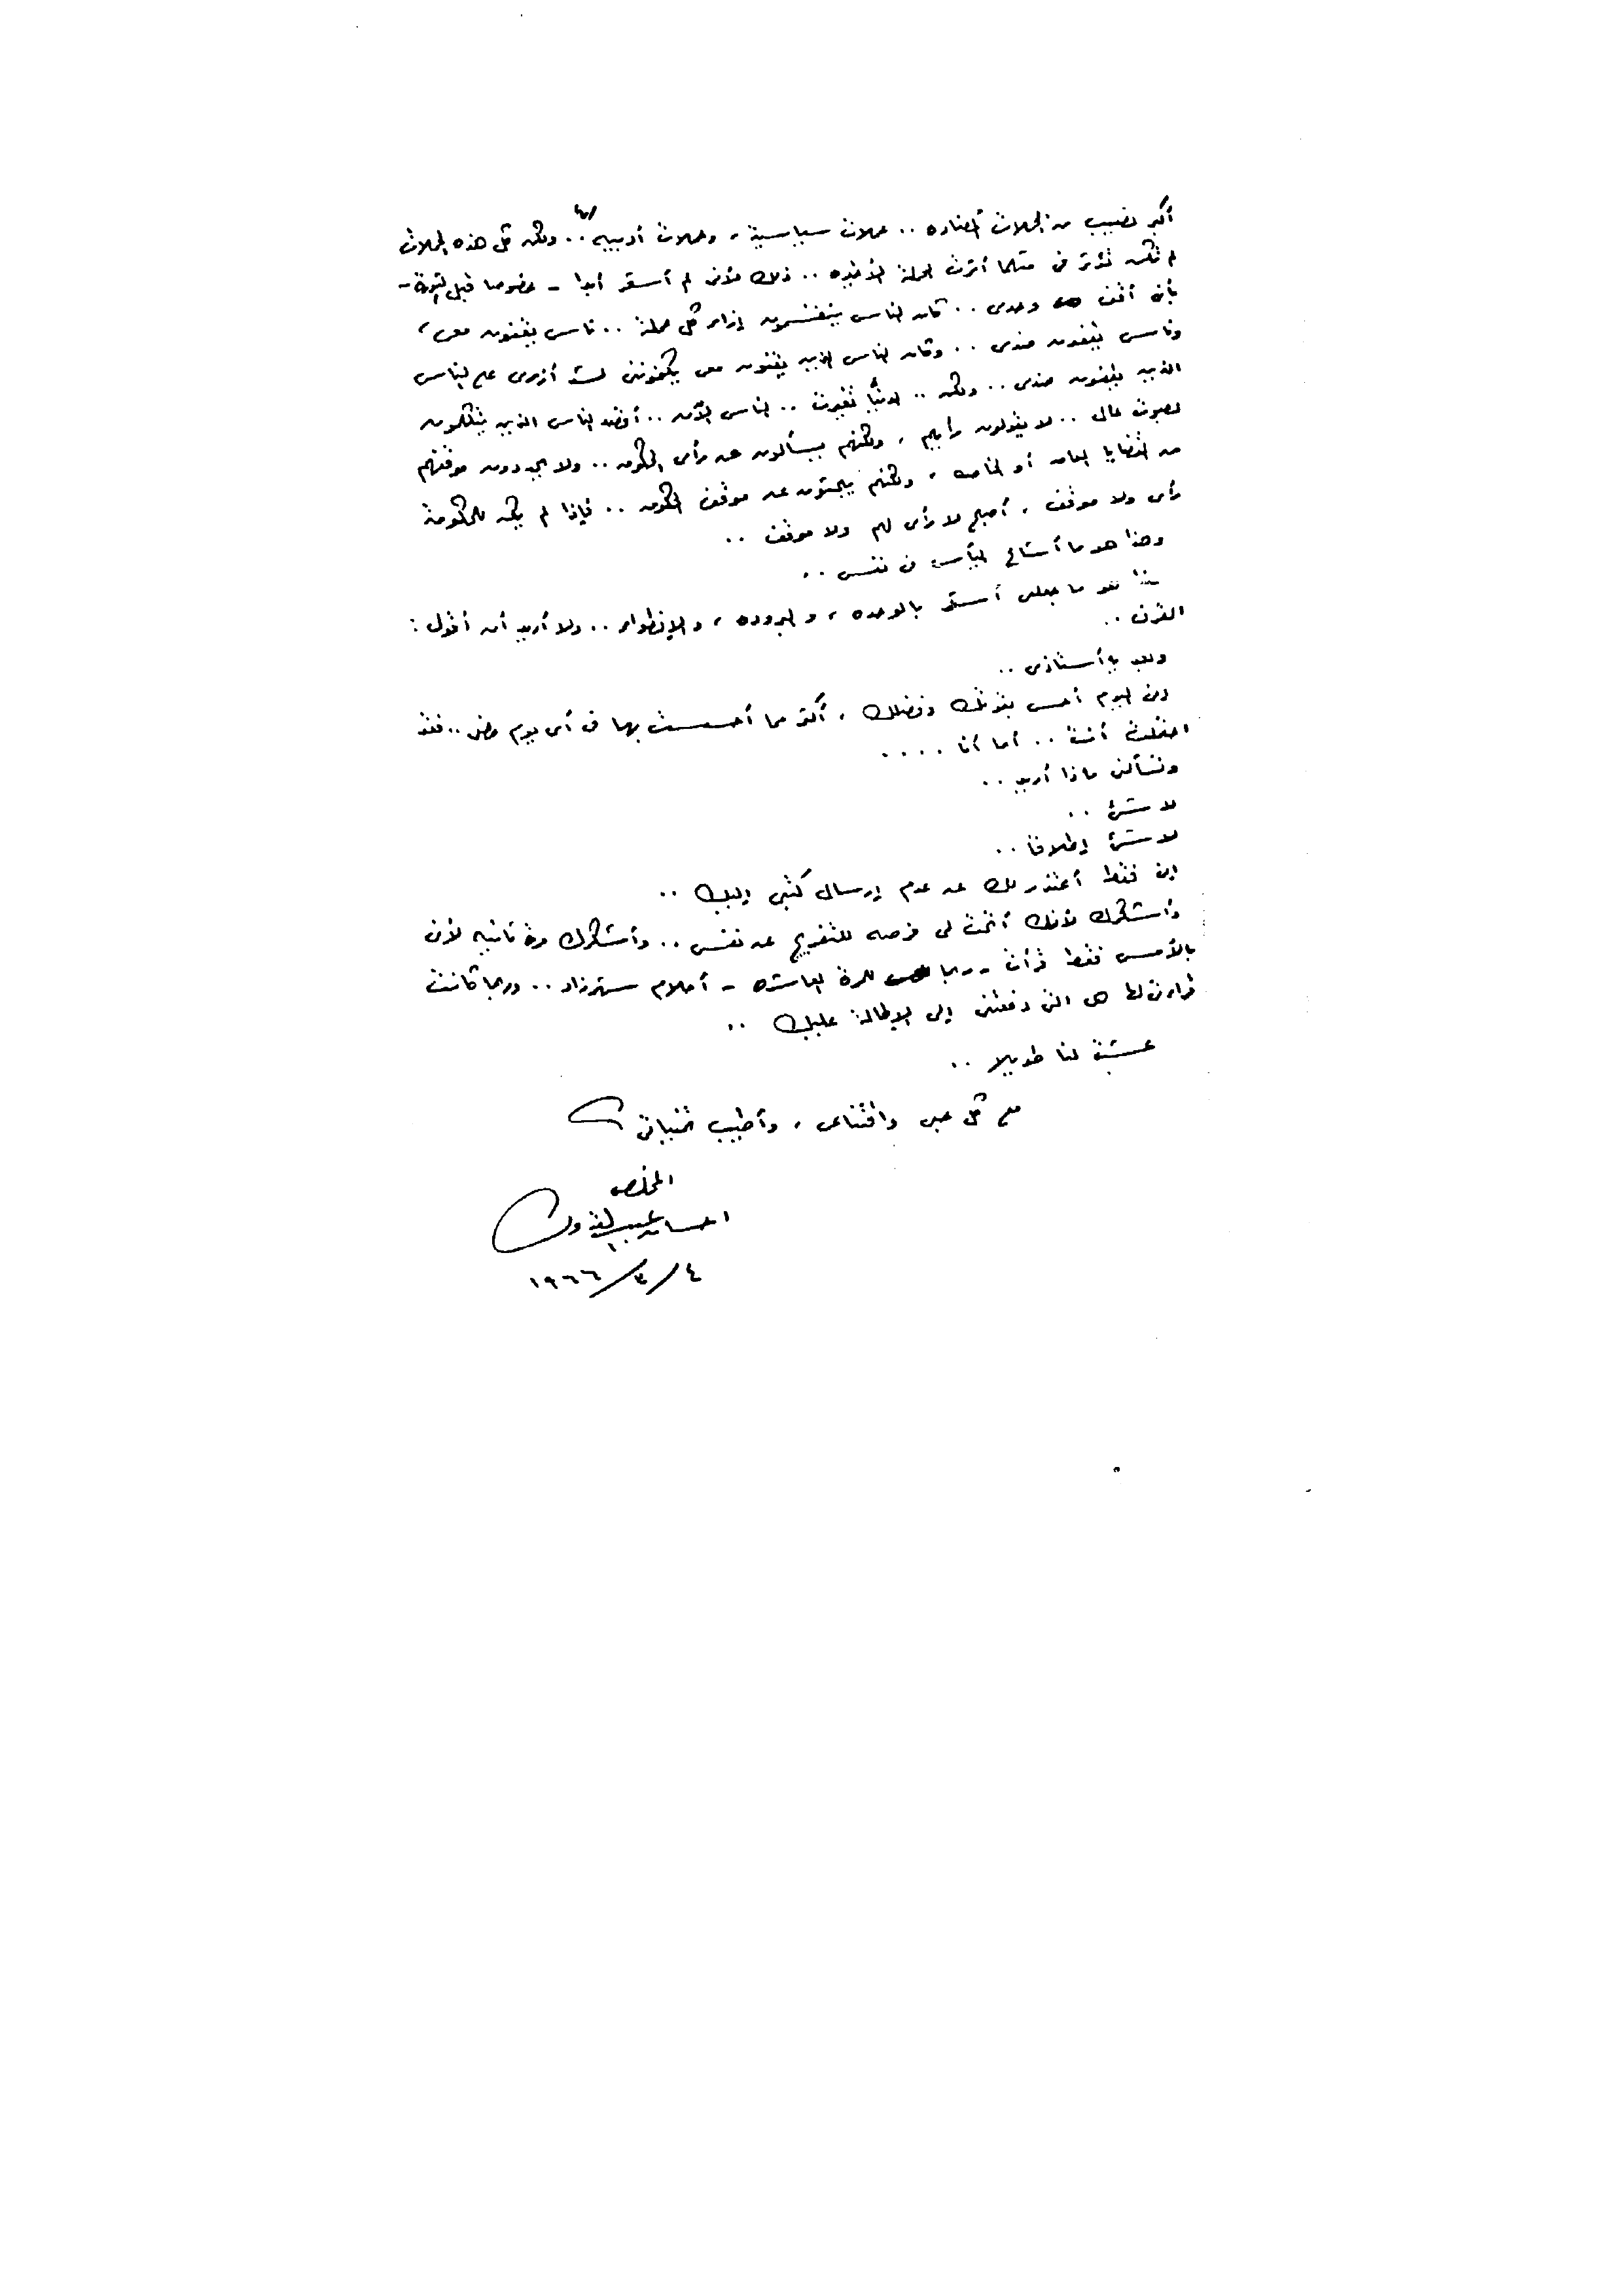 أكبر نصيب من الحملات المضاده .. حملات سياسية ، وحملات أدبيه .. ولكن كل هذه الحملات
لم تكن تؤثر في مثلما أثرت الحملة الأخيره .. ذلك لأني لم أشعر أبدا - خصوصا قبل الثورة -
بأني أقف وحدى .. كان الناس ينقسمون إزاء كل حملة .. ناس يقفون معى ،
وناس يقفون ضدى .. وكان الناس الذين يقفون معى يكفوننى لكى أزهى على الناس
الذين يقفون ضدى .. ولكن .. الدنيا تغيرت .. الناس الآن .. أقصد الناس الذين يتكلمون
بصوت عالى .. لا يقولون رأيهم ، ولكنهم يسألون عن رأى الحكومه .. ولا يحددون موقفهم
من القضايا العامه أو الخاصه ، ولكنهم يبحثون عن موقف الحكومه .. فإذا لم يكن للحكومة
رأى ولا موقف ، أصبح لا رأى لهم ولا موقف ..
وهذا هو ما أشاع اليأس فى نفسى ..
هذا هو ما جعلنى أشعر بالوحده ، والبروده ، والإنطواء .. ولا أريد أن أقول :
القرف ..
وبعد يا أستاذى ..
إنى اليوم أحس بقوتك وفضلك ، أكثر مما أحسست بها فى أى يوم مضى .. فقد
احتملت أنت .. أما أنا ....
وتسألنى ماذا أريد ..
لا شئ ..
لا شئ إطلاقا ..
إنى فقط أعتذر لك عن عدم إرسال كتبى إليك ..
وأشكرك لأنك أتحت لى فرصه للتفريج عن نفسى .. وأشكرك مرة ثانيه لأنى
بالأمس فقط قرأت - ربما للمرة العاشره - أحلام شهرزاد .. وربما كانت
قراءتى لها هى التى دفعتنى إلى الإطالة عليك ..
عشت لنا طويلا ..
مع كل حبى واقتناعى ، وأطيب تمنياتى
المخلص
احسان عبد القدوس
٤/٣/١٩٦٦